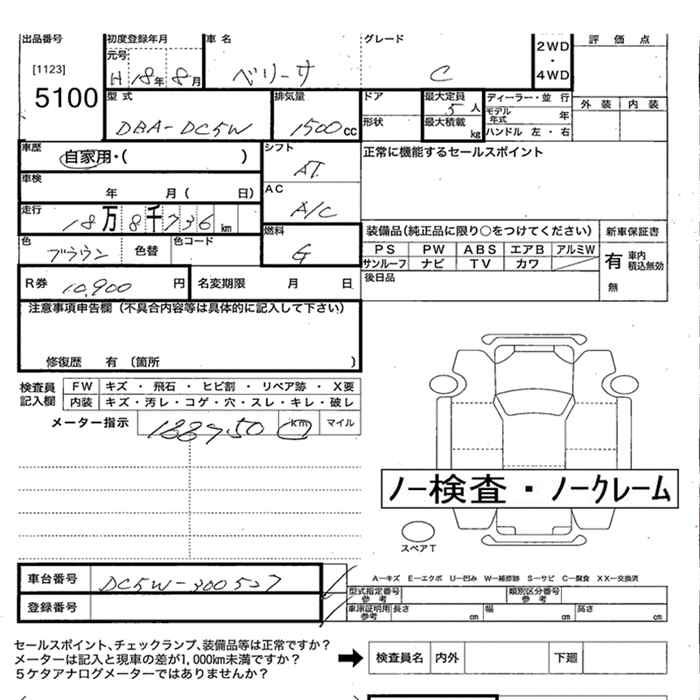 出品番号 初度登録年月 車名 グレード 2WD・4WD 評価点
[1123] 元号
5100 H 18年 8月 ベリーサ C
型式 排気量 ドア 最大定員 ディーラー・並行 外装 内装
5人 モデル年式 年
DBA-DC5W 1500cc 形状 最大積載 kg ハンドル 左・右
車歴 シフト 正常に機能するセールスポイント
自家用・( ) AT
車検 年 月( 日) AC
A/C
走行 18万8千736km 燃料 装備品(純正品に限り○をつけてください) 新車保証書
色 ブラウン 色替 色コード G PS PW ABS エアB アルミW 有 車内積込無効
サンルーフ ナビ TV カワ
R券 10,900円 名変期限 月 日 後日品 無
注意事項申告欄(不具合内容等は具体的に記入して下さい)
修復歴 有(箇所 )
検査員記入欄 FW キズ・飛石・ヒビ割・リペア跡・X要
内装 キズ・汚レ・コゲ・穴・スレ・キレ・破レ
メーター指示 188750 km マイル
ノー検査・ノークレーム
スペアT
車台番号 DC5W-300527 A-キズ E-エクボ U-凹み W-補修跡 S-サビ C-腐食 XX-交換済
型式指定番号参考 類別区分番号参考
登録番号 車庫証明用参考 長さ cm 幅 cm 高さ cm
セールスポイント、チェックランプ、装備品等は正常ですか?
メーターは記入と現車の差が1,000km未満ですか? 検査員名 内外 下廻
5ケタアナログメーターではありませんか?